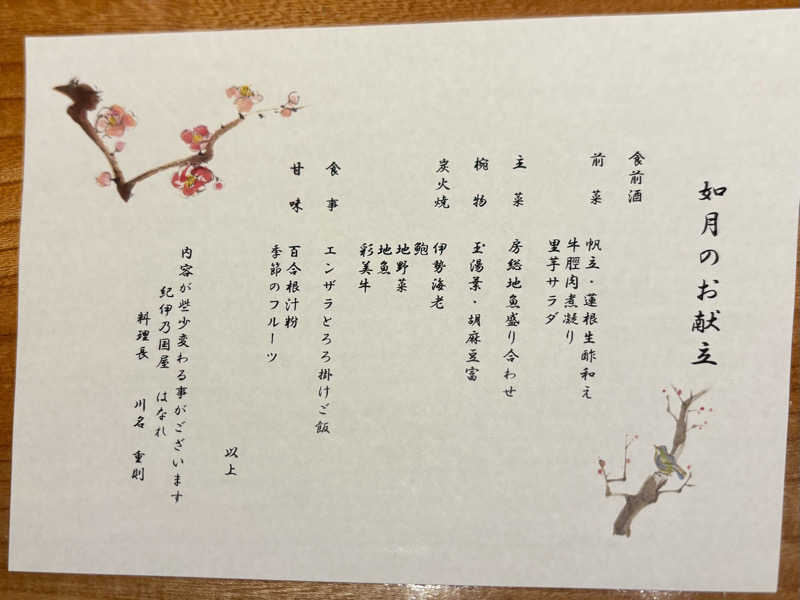 如月のお献立
食前酒
前菜
帆立・蓮根生酢和え
牛脛肉煮凝り
里芋サラダ
主菜
房総地魚盛り合わせ
椀物
玉湯葉・胡麻豆富
炭火焼
伊勢海老
鮑
地野菜
地魚
彩美牛
食事
エンザラとろろ掛けご飯
甘味
百合根汁粉
季節のフルーツ
以上
内容が些少変わる事がございます
紀伊乃国屋 はなれ
料理長 川名 重則